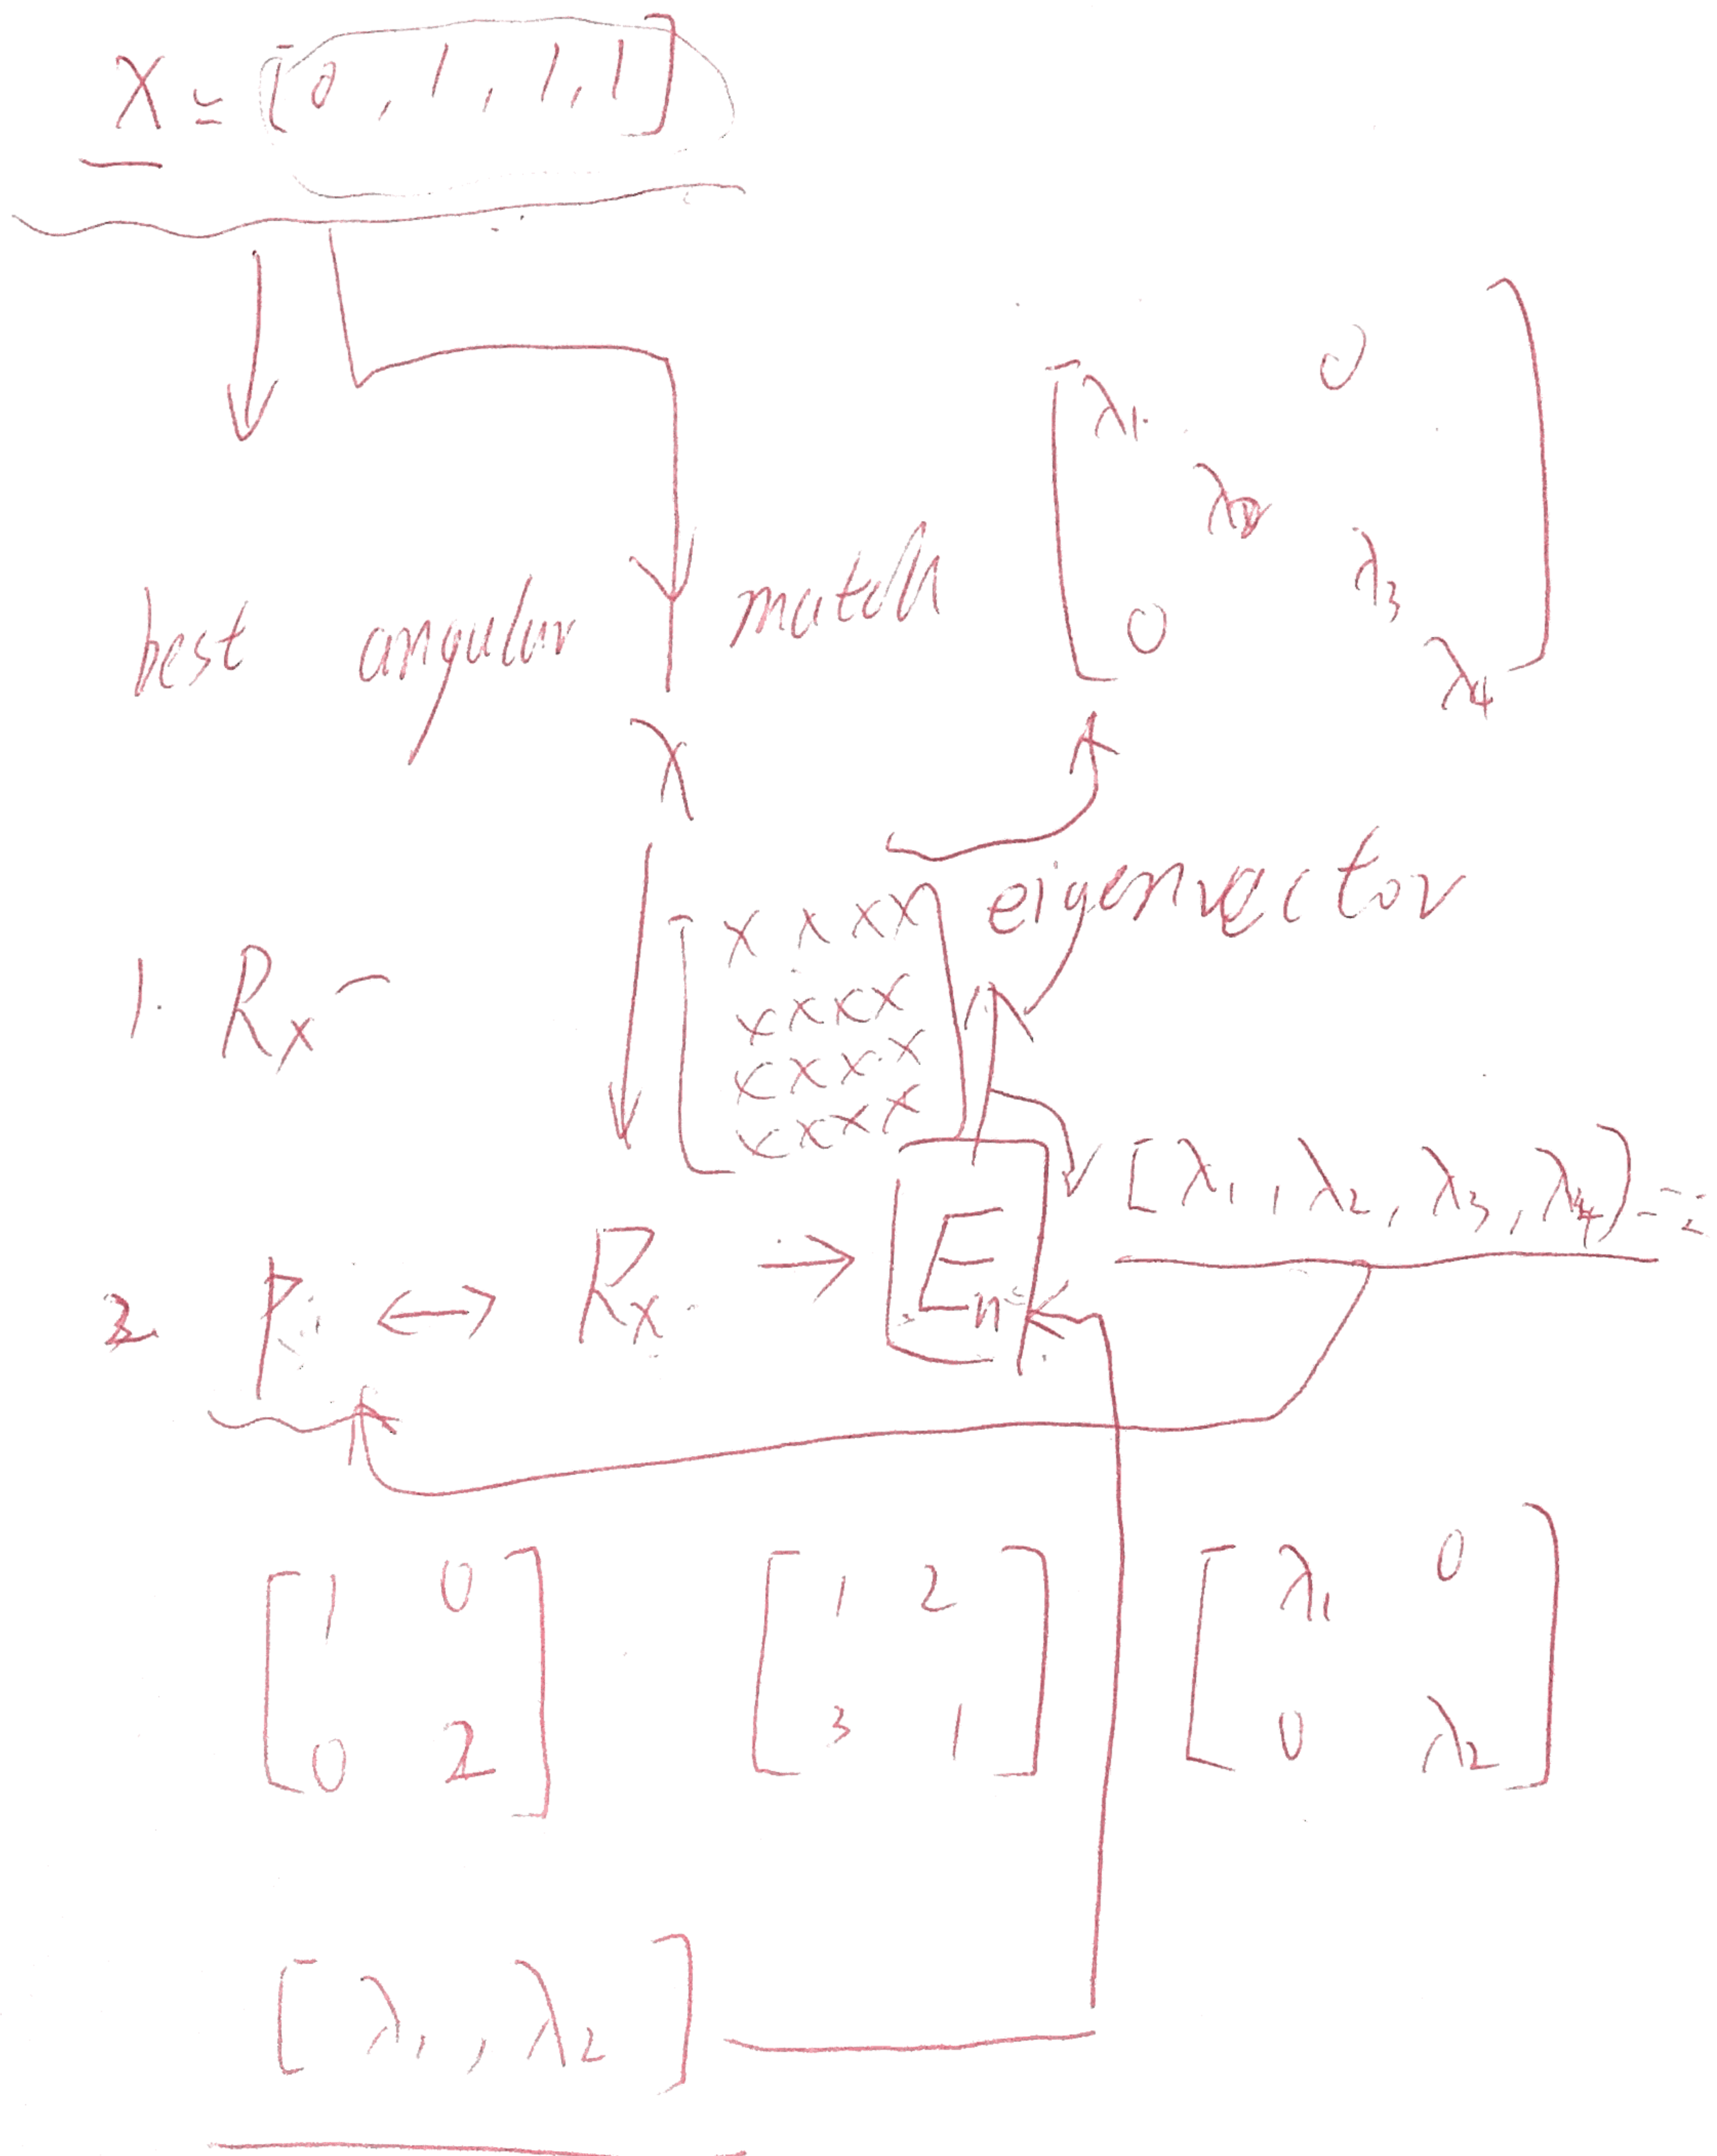 X = [0, 1, 1, 1]
best angular match
[λ1 0
λ2
λ3
0 λ4]
X
eigenvector
[x x x x
x x x x
x x x x
x x x x]
1. Rx
[λ1, λ2, λ3, λ4] =
2. ↔ Rx → En
[1 0
0 2]
[1 2
3 1]
[λ1 0
0 λ2]
[λ1, λ2]